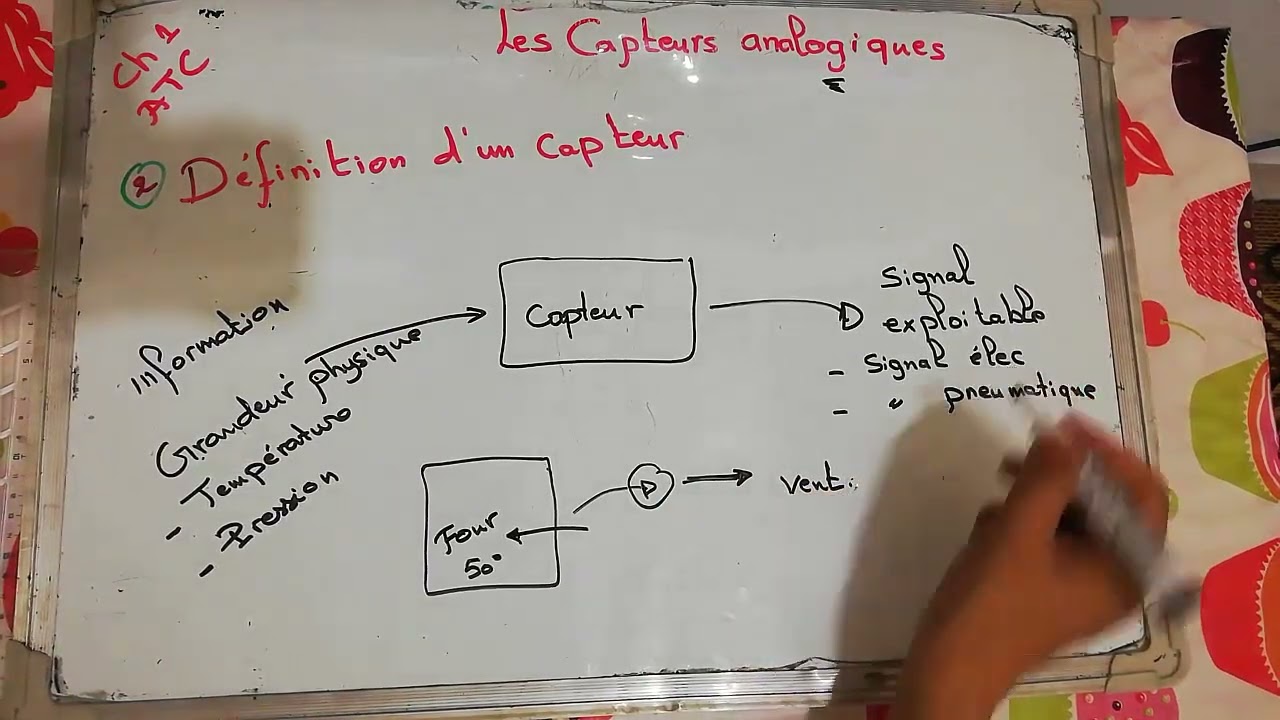 Les Capteurs analogiques
Ch 1
ATC
2 Définition d'un capteur
Information
Grandeur physique
- Température
- Pression
Capteur
Signal
exploitable
- Signal élec
- " pneumatique
Four
50°
vent.